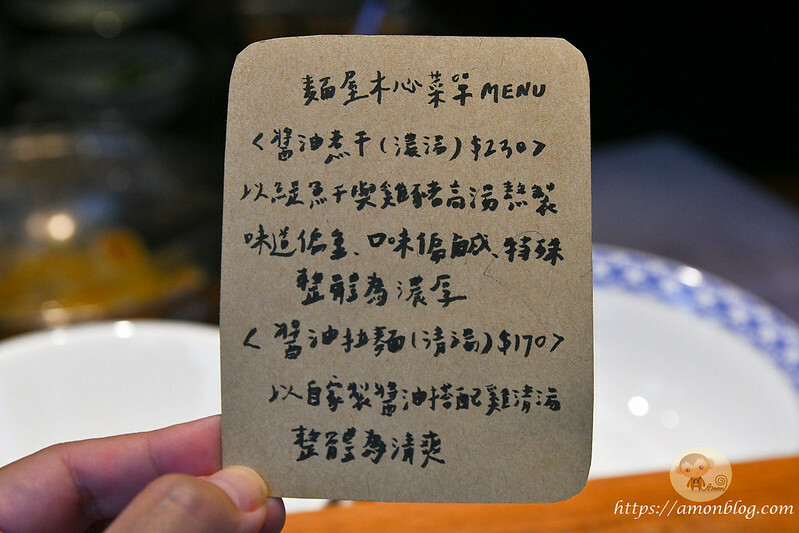 麵屋木心菜單 MENU
<醬油煮干(濃湯)$230>
以鯷魚干與雞豬高湯熬製
味道偏重、口味偏鹹、特殊
整體為濃厚
<醬油拉麵(清湯)$170>
以自家製醬油搭配雞清湯
整體為清爽
https://amonblog.com